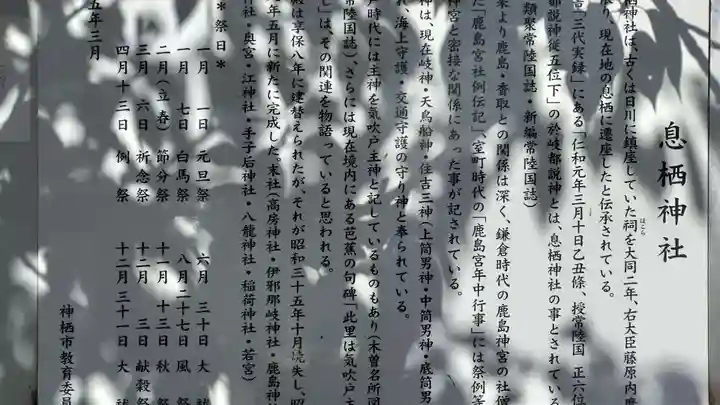 息栖神社
栖神社は、古くは日川に鎮座していた祠を大同二年、右大臣藤原内麿
ほこら
り、現在地の息栖に遷座したと伝承されている。
三代実録」にある「仁和元年三月十日乙丑條、授常陸国 正六位
都説神従五位下」の於岐都説神とは、息栖神社の事とされている
類聚常陸国誌・新編常陸国誌)
来より鹿島・香取との関係は深く、鎌倉時代の鹿島神宮の社僧
た「鹿島宮社例伝記」、室町時代の「鹿島宮年中行事」には祭例等
神宮と密接な関係にあった事が記されている。
神は、現在岐神・天鳥船神・住吉三神(上筒男神・中筒男神・底筒男
れ、海上守護・交通守護の守り神と奉られている。
戸時代には主神を気吹戸主神と記しているものもあり(木曽名所図
常陸国誌)、さらには現在境内にある芭蕉の句碑「此里は気吹戸主
」は、その関連を物語っていると思われる。
殿は享保八年に建替えられたが、それが昭和三十五年十月焼失し、昭
年五月に新たに完成した。末社(高房神社・伊邪那岐神社・鹿島神
神社・奥宮・江神社・手子后神社・八龍神社・稲荷神社・若宮)
*祭日*
一月 一日 元旦祭 六月 三十日 大祓
一月 七日 白馬祭 八月二十七日 風祭
二月(立春) 節分祭 十一月 十三日 秋祭
三月 六日 祈念祭 十二月 三日 献穀祭
四月十三日 例祭 十二月三十一日 大祓
五年三月
神栖市教育委員